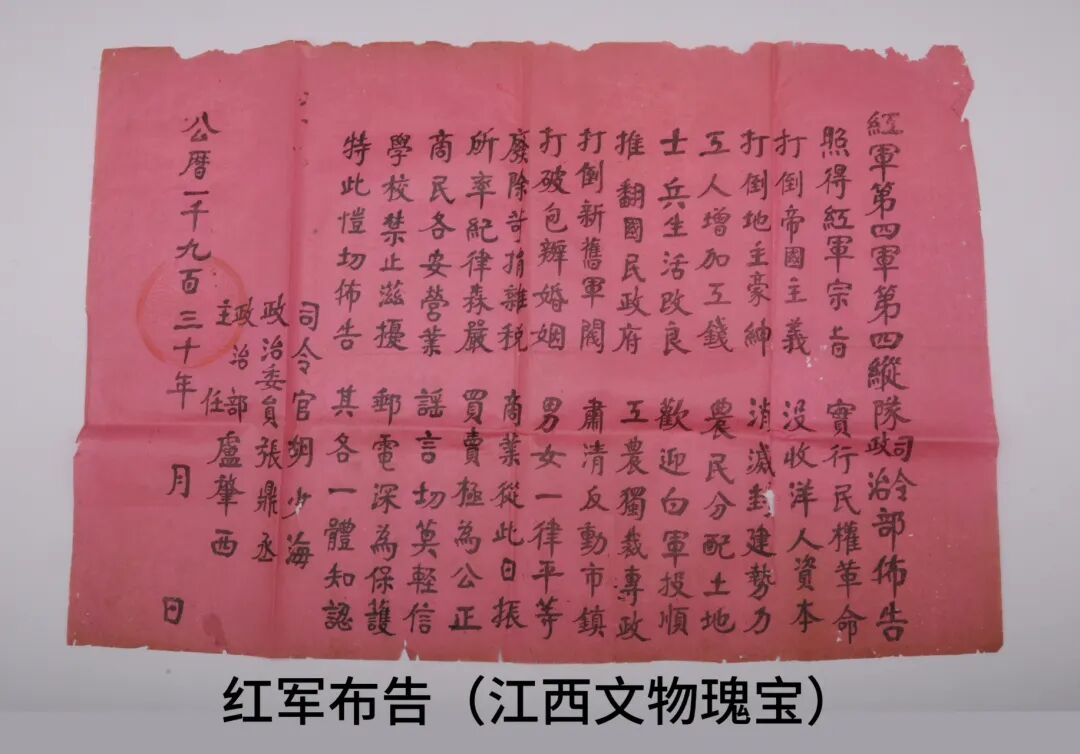 紅軍第四軍第四縱隊司令政治部佈告
照得紅軍宗旨 實行民權革命
打倒帝國主義 沒收洋人資本
打倒地主豪紳 消滅封建勢力
工人增加工錢 農民分配土地
士兵生活改良 歡迎白軍投順
推翻國民政府 工農獨裁專政
打倒新舊軍閥 肅清反動市鎮
打破包辦婚姻 男女一律平等
廢除苛捐雜稅 商業從此日振
所率紀律森嚴 買賣極為公正
商民各安營業 謠言切莫輕信
學校禁止滋擾 郵電深為保護
特此愷切佈告 其各一體知認
司令官胡少海
政治委員張鼎丞
政治部主任盧肇西
公曆一千九百三十年 月 日
红军布告（江西文物瑰宝）